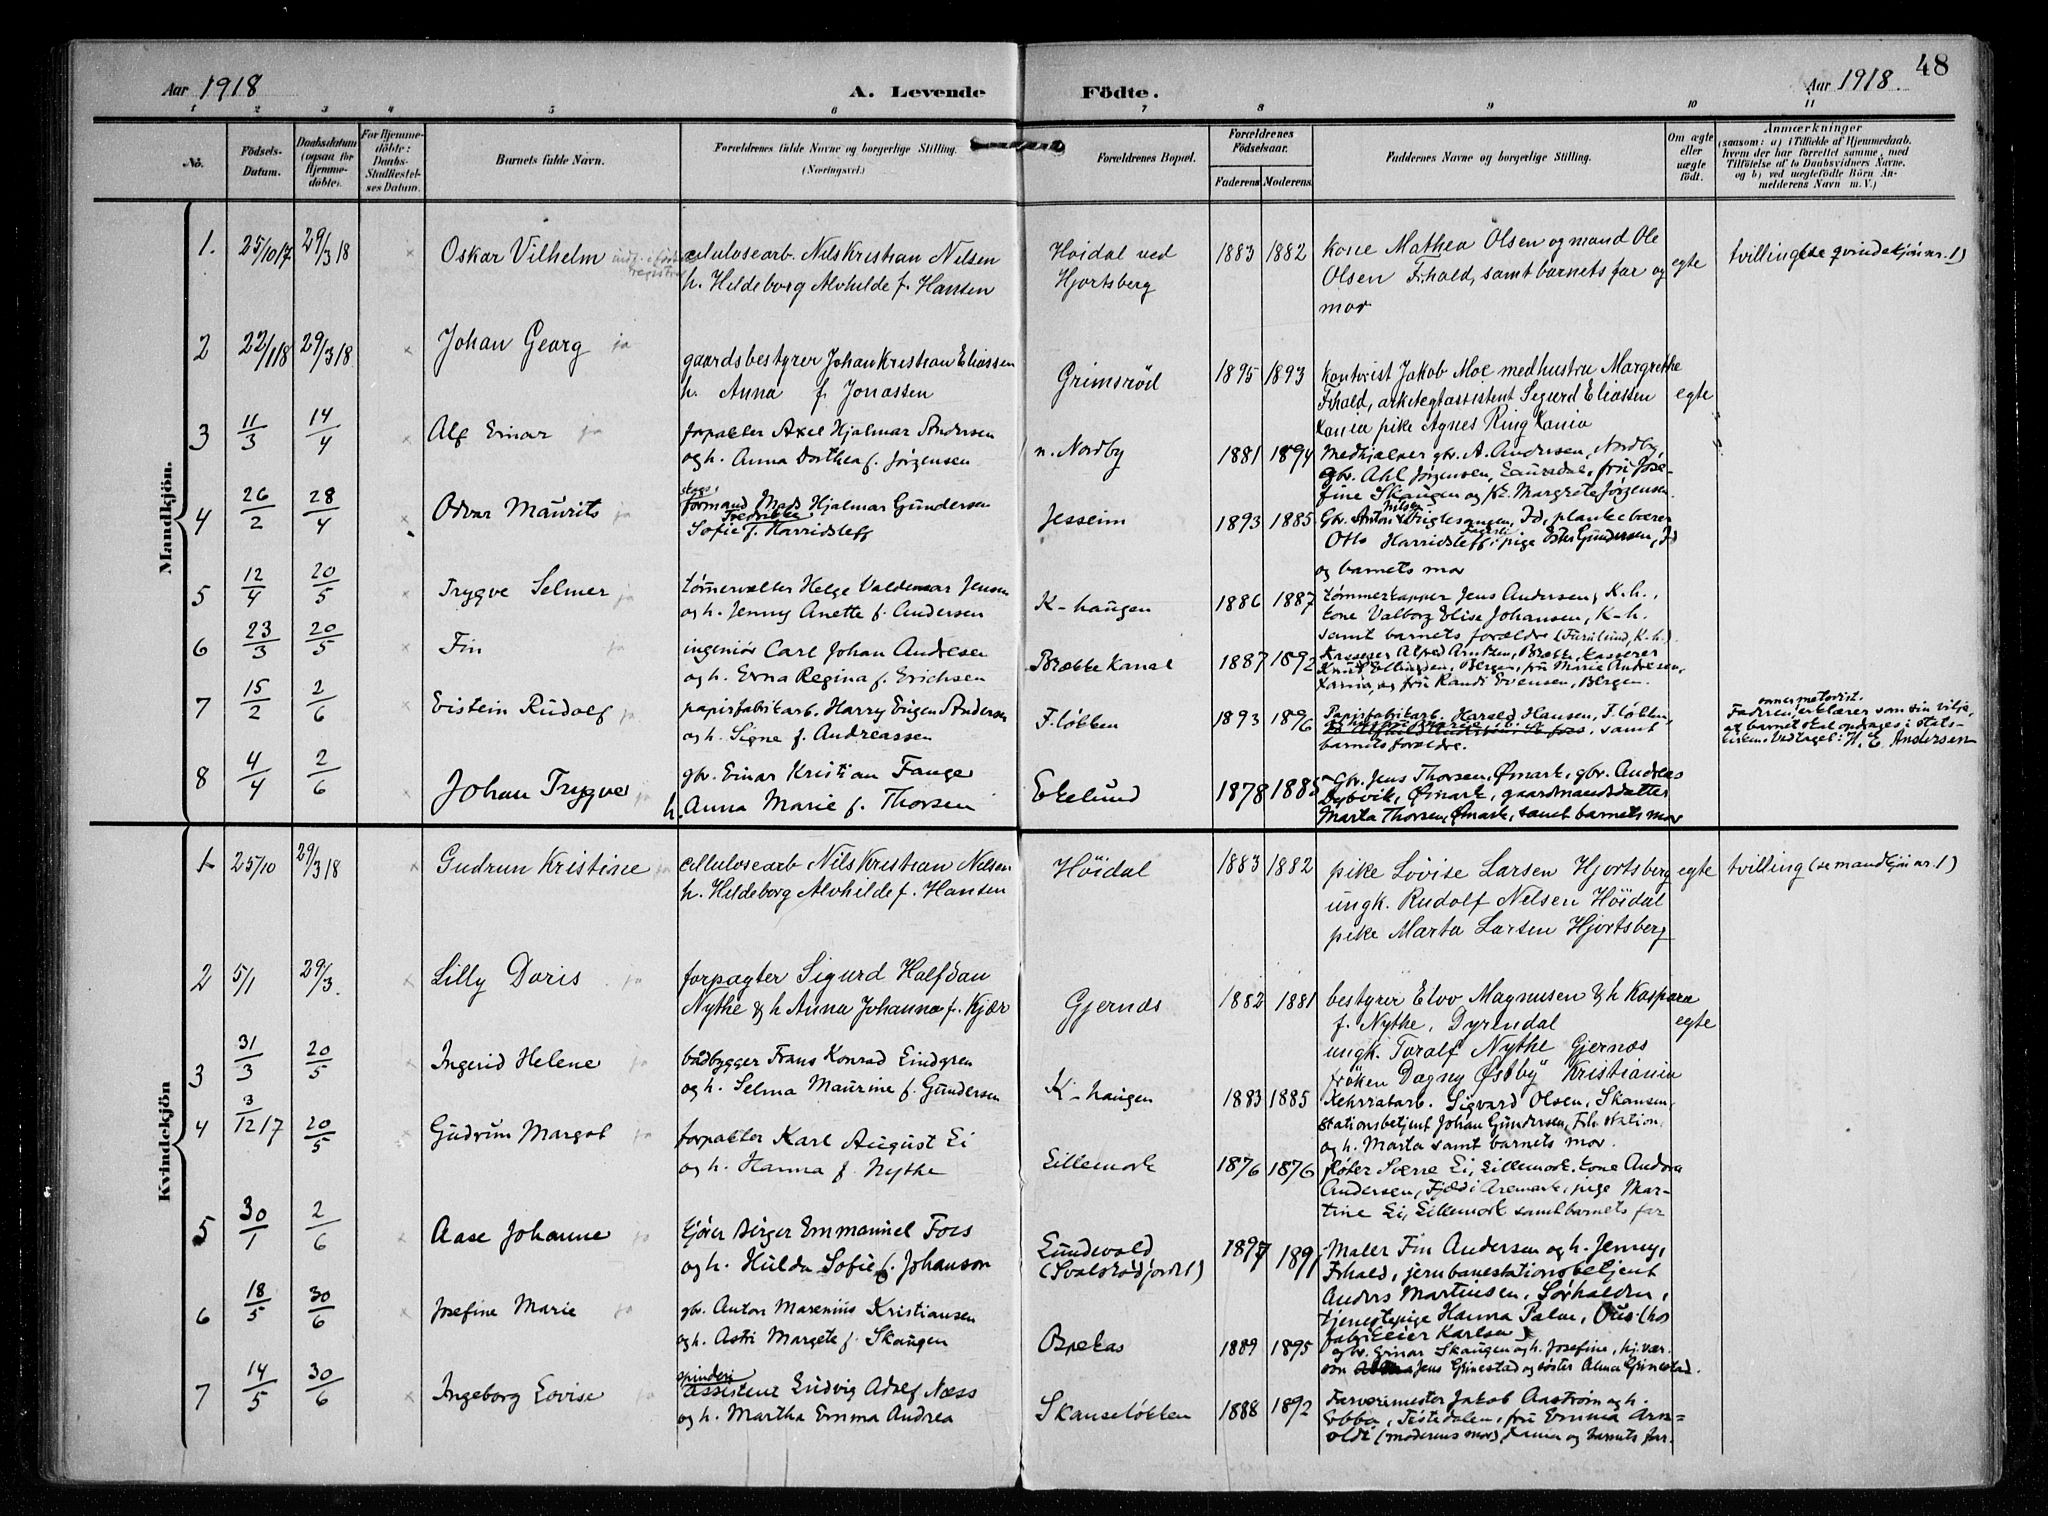 48
Aar 1918
A. Levende Födte.
Aar 1918.
1 2 3 4 5 6 7 8 9 10 11
No.
Födsels-
Datum.
Daabsdatum
(ogsaa for
Hjemme-
döbte).
For Hjemme-
döbte:
Daabs-
Stadfæstel-
ses Datum.
Barnets fulde Navn.
Forældrenes fulde Navne og borgerlige Stilling.
(Næringsvei.)
Forældrenes Bopæl.
Forældrenes
Födselsaar.
Faderens Moderens
Faddernes Navne og borgerlige Stilling.
Om ægte
eller
uægte
født.
Anmærkninger
(saasom: a) i Tilfælde af Hjemmedaab.
hvem der har forrettet samme, med
Tilföielse af to Daabsvidners Navne.
og b) ved uægtefödte Börn An-
melderens Navn m. V.)
Mandkjön.
1. 25/10 17 29/3 18 Oskar Vilhelm
cellulosearb. Nils Kristian Nilsen
h. Hildeborg Alvhilde f. Hansen
Höidal ved
Hjortsberg
1883 1882
kone Mathea Olsen og mand Ole
Olsen Fr.hald, samt barnets far og
mor
egte
tvilling (se qvindekjön nr. 1)
2 22/1 18 29/3 18 Johan Georg ja
gaardsbestyrer Johan Kristian Eliassen
h. Anna f. Jonassen
Grimsröd
1895 1893
kontorist Jakob Moe med hustru Margrethe
Fr.hald, arkitegtassistent Sigurd Eliassen
Kania pike Agnes Ring Kania
egte
3 11/3 14/4 Alf Einar ja
forpakter Axel Hjalmar Andersen
og h. Anna Dorthea f. Jørgensen
n. Nordby
1881 1894
Medhjælper gbr. A. Andersen, Nordby,
gbr. Ahl Jørgensen, Lauvsdal, fru Jose-
fine Skaugen og Margrete Jørgensen
4 26/2 28/4 Odvar Maurits ja
formand Mads Hjalmar Gundersen
Fredrikke
Sofie f. Harridsleff
Jesseim
1893 1885
Gbr. Anton Nilsen Fuglesangen, Id, plankebærer
Otto Harridsleff, pige Ester Gundersen, Id
og barnets mor
5 12/4 20/5 Trygve Selmer ja
tømmervalter Helge Valdemar Jensen
og h. Jenny Anette f. Andersen
K-haugen
1886 1887
tømmerkapper Jens Andersen, K.h.,
kone Valborg Elise Johansen, K-h.
samt barnets forældre (Furulund, K-h.)
6 23/3 20/5 Fin ja
ingeniør Carl Johan Andresen
og h. Erna Regina f. Erichsen
Brække Kanal
1887 1892
Kasserer Alfred Arntzen, Brække, kasserer
Knut Ellingsen, Bergen, fru Marie Andresen,
Kania, og fru Randi Evensen, Bergen.
7 15/2 2/6 Eistein Rudolf ja
papirfabrikarb. Harry Eugen Andersen
og h. Signe f. Andreassen
F.løkken
1893 1896
Papirfabrikarb. Harald Hansen, F.løkken,
samt
barnets forældre.
Fadren, metodist, erklærer som sin vilje,
at barnet skal opdrages i stats-
kirken. Vedtaget: H. E. Andersen
8 4/4 2/6 Johan Trygve ja
gbr. Einar Kristian Fange
h. Anna Marie f. Thorsen
Ekelund
1878 1885
Gbr. Jens Thorsen, Ømark, gbr. Andreas
Dybvik, Ømark, gaardmandsdatter
Marta Thorsen, Ømark, samt barnets mor
Kvindekjön
1 25/10 29/3 18 Gudrun Kristine ja
cellulosearb Nils Kristian Nilsen
h. Hildeborg Alvhilde f. Hansen
Höidal
1883 1882
pike Lövise Larsen Hjortsberg
ungk. Rudolf Nilsen Höidal
pike Marta Larsen Hjortsberg
egte
tvilling (se mandkjön nr. 1)
2 5/1 29/3. Lilly Doris ja
forpagter Sigurd Halfdan
Nythe & h Anna Johanna f. Kjær
Gjernæs
1882 1881
bestyrer Elov Magnusen & h Kaspara
f. Nythe, Dyrendal
ungk. Toralf Nythe Gjernæs
frøken Dagny Østby Kristiania
egte
3 31/3 20/5 Ingerid Helene ja
baadbygger Frans Konrad Lindgren
og h. Selma Maurine f. Gundersen
K-haugen
1883 1885
Kehrratarb. Sigvard Olsen, Skansen,
stationsbetjent Johan Gundersen, Fr.h. station
og h. Marta samt barnets mor.
4 3/12 17 20/5 Gudrun Margot ja
forpakter Karl August Ei
og h. Hanna f. Nythe
Lillemork
1876 1876
fløter Sverre Ei, Lillemork, kone Andora
Andersen, Fjeld i Aremark, pige Mar-
tine Ei, Lillemork samt barnets far
5 30/1 2/6 Aase Johanne ja
kjører Birger Emmanuel Foss
og h. Hulda Sofie f. Johanson
Lundevold
(Svalerødfjordet)
1897 1891
Maler Fin Andersen og h. Jenny,
Fr.hald, jernbanestationsbetjent
Anders Martinsen, Sørhalden,
tjenestepige Hanna Palm, Ous (hos
fabrikeier Karlsen)
6 18/5 30/6 Josefine Marie ja
gbr. Anton Marenius Kristiansen
og h. Astri Margete f. Skaugen
Ospekas
1889 1895
gbr. Einar Skaugen og h. Josefine, hj.vær.
søn Jens Gjinestad og søster Alma Gjinestad.
7 14/5 30/6 Ingeborg Lovise ja
spinderi
assistent Ludvig Adolf Næss
og h. Martha Emma Andrea
Skanseløkken
1888 1892
Farverimester Jakob Aastrøm og h.
Ebba, Tistedalen, fru Emma Arn-
oldi (moderens mor), Kania og barnets far.